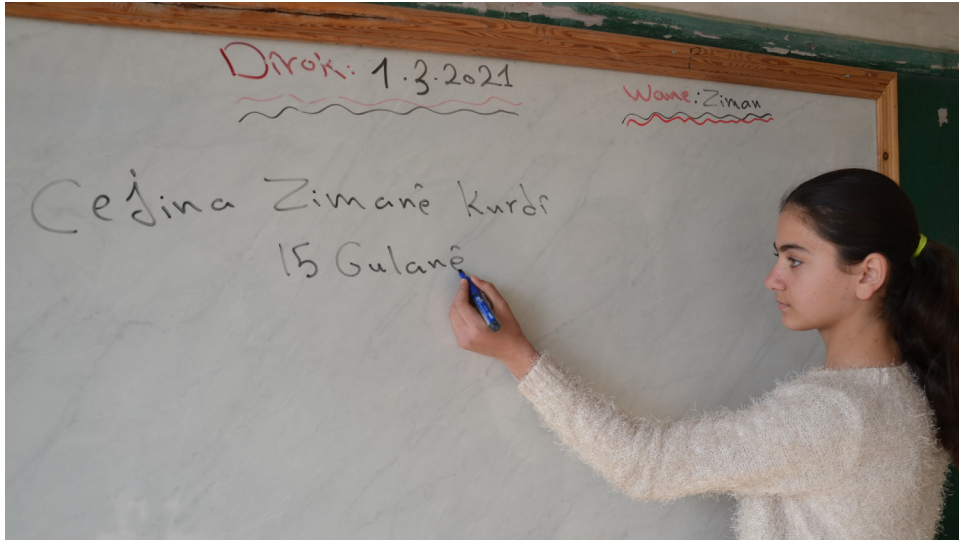 Dîrok: 1.3.2021
Wane: Ziman
Cejina Zimanê Kurdî
15 Gulanê